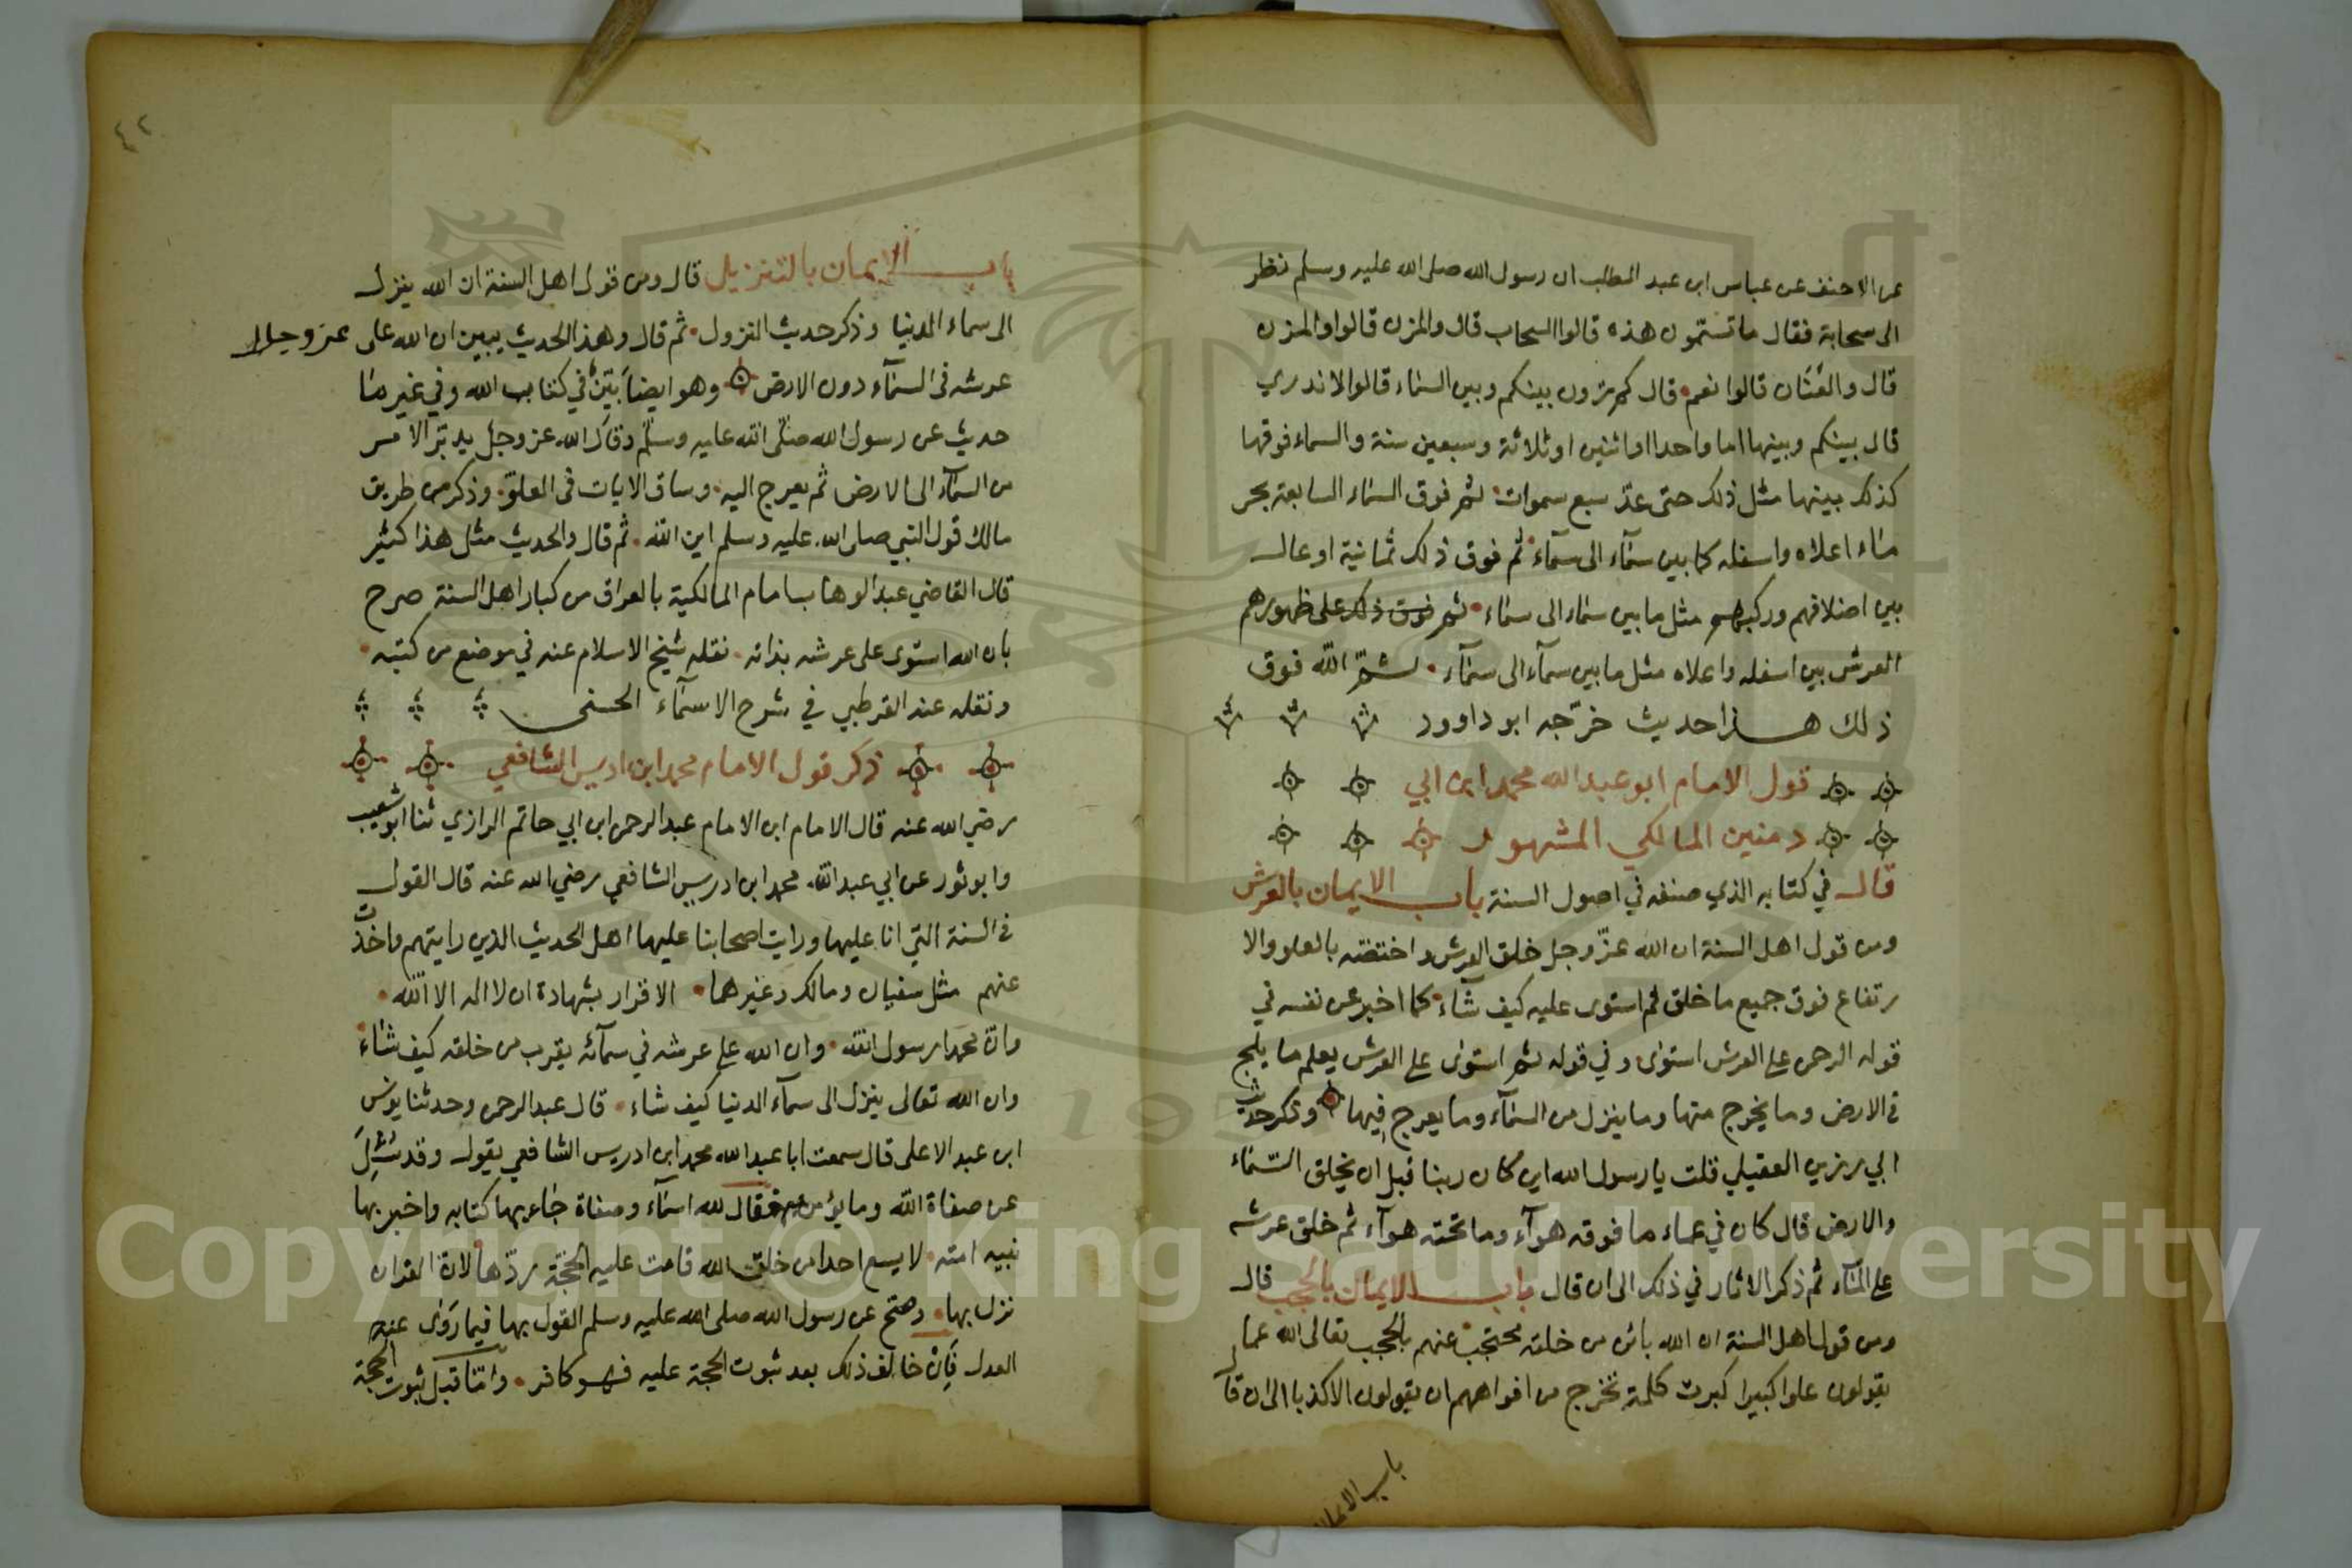 عن الاحنف عن عباس ابن عبد المطلب ان رسول الله صلى الله عليه وسلم نظر
الى سحابة فقال ما تسمّون هذه قالوا السحاب قال والمزن قالوا والمزن
قال والعَنَان قالوا نعم قال كم ترون بينكم وبين السماء قالوا لا ندري
قال بينكم وبينها اما واحدا اواثنين اوثلاثة وسبعين سنة والسماء فوقها
كذلك بينها مثل ذلك حتى عدّ سبع سموات ثم فوق السماء السابعة بحر
ماء اعلاه واسفله كما بين سمآء الى سمآء ثم فوق ذلك ثمانية اوعال
بين اضلافهم وركبهم مثل ما بين سماء الى سماء ثم فوق ذلك على ظهورهم
العرش بين اسفله واعلاه مثل ما بين سمآء الى سمآء ثمّ اللّه فوق
ذلك هذا حديث خرّجه ابو داوود
قول الامام ابو عبد الله محمد ابن ابي
دمنين المالكي المشهور
قال في كتابه الذي صنفه في اصول السنة باب الايمان بالعرش
ومن قول اهل السنة ان الله عزّ وجل خلق العرش واختصّه بالعلو والا
رتفاع فوق جميع ما خلق ثم استوى عليه كيف شآء كما اخبر عن نفسه في
قوله الرحمن على العرش استوى وفي قوله ثم استوى على العرش يعلم ما يلج
في الارض وما يخرج منها وما ينزل من السمآء وما يعرج فيها وذكر حديث
ابي رزين العقيلي قلت يا رسول الله اين كان ربنا قبل ان يخلق السّماء
والارض قال كان في عماء ما فوقه هوآء وما تحته هوآء ثم خلق عرشه
على المآء ثم ذكر الاثار في ذلك الى ان قال باب الايمان بالحجب قال
ومن قول اهل السنة ان الله بائن من خلقه محتجب عنهم بالحجب تعالى الله عما
يقولون علوا كبيرا كبرت كلمة تخرج من افواههم ان يقولون الا كذبا الى ان قال
باب الايمان
٤٢
باب الايمان بالتنزيل قال ومن قول اهل السنة ان الله ينزل
الى سماء الدنيا وذكر حديث النزول ثم قال وهذا الحديث يبين ان الله على عزوجل
عرشه في السمآء دون الارض وهو ايضا بيّن في كتاب الله وفي غير ما
حديث عن رسول الله صلّى الله عليه وسلّم وقال الله عز وجل يدبّر الامر
من السمآء الى الارض ثم يعرج اليه وساق الايات في العلوّ وذكر من طريق
مالك قول النبي صلى الله عليه وسلم اين اللّه ثم قال والحديث مثل هذا كثير
قال القاضي عبد الوهاب امام المالكية بالعراق من كبار اهل السنة صرح
بان الله استوى على عرشه بذاته نقله شيخ الاسلام عنه في موضع من كتبه
ونقله عنه القرطبي في شرح الاسمآء الحسنى
ذكر قول الامام محمد ابن ادريس الشافعي
رضي الله عنه قال الامام ابن الامام عبد الرحمن ابن ابي حاتم الرازي ثنا ابو شعيب
وابو ثور عن ابي عبد الله محمد ابن ادريس الشافعي رضي الله عنه قال القول
في السنة التي انا عليها ورايت اصحابنا عليها اهل الحديث الذين رايتهم واخذت
عنهم مثل سفيان ومالك وغيرهما الاقرار بشهادة ان لا اله الا اللّه
وانّ محمدا رسول اللّه وان الله على عرشه في سمآئه يقرب من خلقه كيف شاء
وان الله تعالى ينزل الى سمآء الدنيا كيف شاء قال عبد الرحمن وحدثنا يونس
ابن عبد الاعلى قال سمعت ابا عبد الله محمد ابن ادريس الشافعي يقول وقد سُئِلَ
عن صفاة اللّه وما يؤمن به فقال لله اسمآء وصفاة جاء بها كتابه واخبر بها
نبيه امته لا يسع احدا من خلق الله قامت عليه الحجّة ردّها لانّ القران
نزل بها وصحّ عن رسول الله صلى الله عليه وسلم القول بها فيما رَوَى عنه
العدل فَإِنْ خالف ذلك بعد ثبوت الحجة عليه فهو كافر وامّا قبل ثبوت الحجة
Copyright © King Saud University